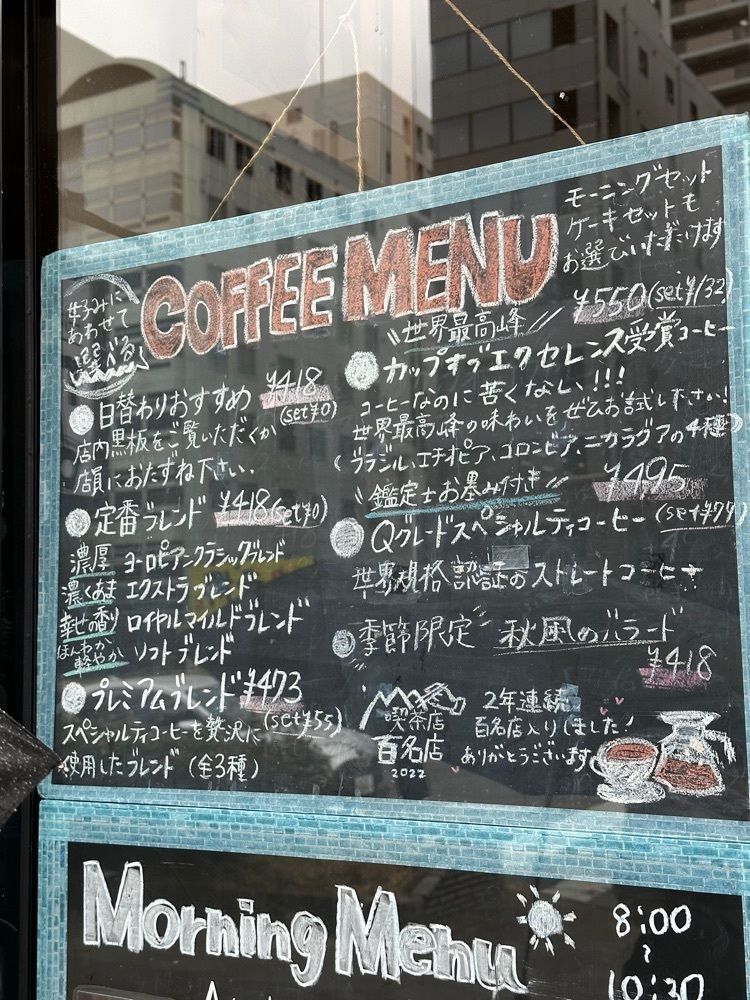 モーニングセット
ケーキセットも
お選びいただけます
COFFEE MENU
きぶんに
あわせて
選べる
日替わりおすすめ ¥418
(set¥0)
店内黒板をご覧いただくか
店員におたずね下さい.
定番ブレンド ¥418(set¥0)
濃厚 ヨーロピアンクラシックブレンド
濃くあま エクストラブレンド
幸せの香り ロイヤルマイルドブレンド
ほんわか軽やか ソフトブレンド
プレミアムブレンド ¥473
(set¥55)
スペシャルティコーヒーを贅沢に
使用したブレンド (全3種)
¥550(set¥132)
世界最高峰
カップオブエクセレンス受賞コーヒー
コーヒーなのに苦くない!!!
世界最高峰の味わいをぜひお試し下さい!
(ブラジル、エチオピア、コロンビア、ニカラグアの4種)
鑑定士お墨み付き ¥495
Qグレードスペシャルティコーヒー (set¥77)
世界規格認証のストレートコーヒー
季節限定 秋風のバラード
¥418
喫茶店
百名店
2022
2年連続
百名店入りしました!
ありがとうございます
Morning Menu
8:00
~
10:30